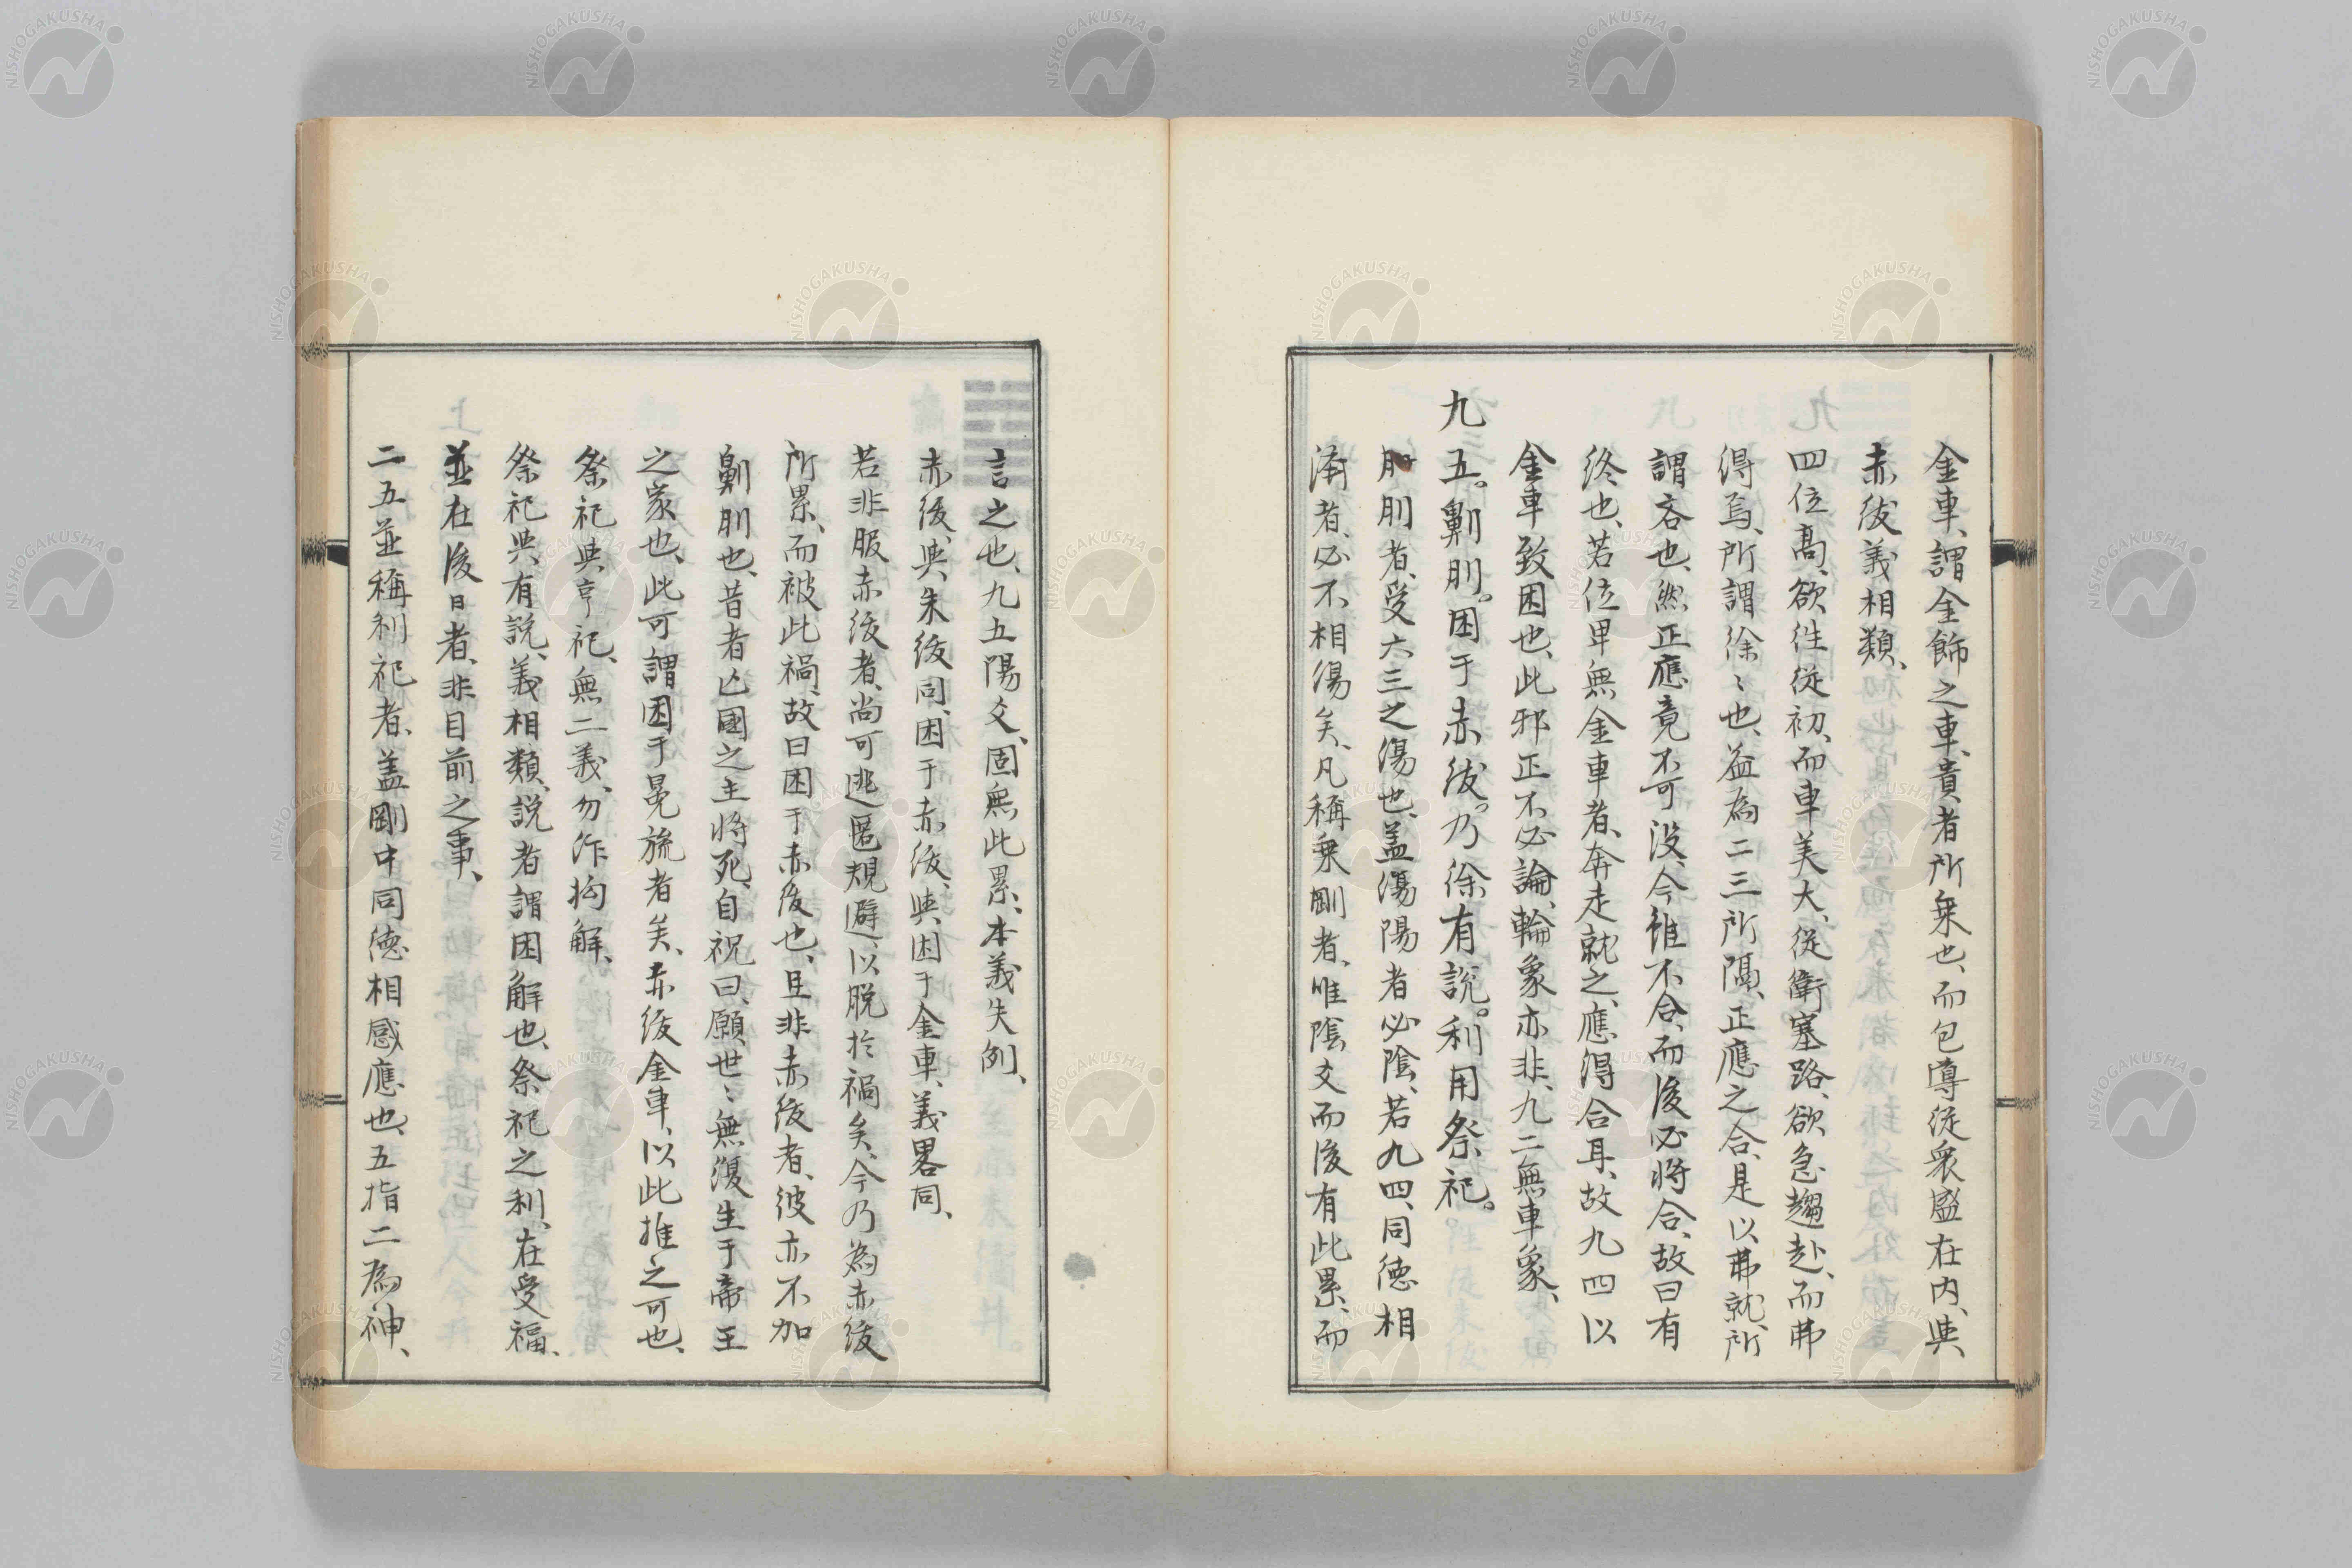 金車、謂金飾之車、貴者所乗也、而包導従衆盛在内、與、
赤紱義相類、
四位髙、欲徃従初、而車美大、従衛塞路、欲急趨赴、而弗
得焉、所謂徐〻也、益為二三所隔、正應之合、是以弗就、所
謂吝也、然正應竟不可没、今雖不合、而後必将合、故曰有
終也、若位卑無金車者、奔走就之、應得合耳、故九四以
金車致困也、此邪正不必論、輪象亦非、九二無車象、
九五。劓刖。困于赤紱。乃徐有説。利用祭祀。
刖者、受六三之傷也、盖傷陽者必陰、若九四、同徳相
済者、必不相傷矣、凡稱乗剛者、唯陰爻而後有此累、而
言之也、九五陽爻、固無此累、本義失例、
赤紱、與朱紱同、困于赤紱、與困于金車、義畧同、
若非服赤紱者、尚可逃匿規避、以脱於禍矣、今乃為赤紱
所累、而被此禍、故曰困于赤紱也、且非赤紱者、彼亦不加
劓刖也、昔者亡國之主将死、自祝曰、願世〻無復生于帝王
之家也、此可謂困于冕旒者矣、赤紱金車、以此推之可也、
祭祀與亨祀、無二義、勿作拘解、
祭祀與有説、義相類、説者謂困解也、祭祀之利、在受福、
並在後日者、非目前之事、
二五並稱利祀者、盖剛中同徳相感應也、五指二為神、
NISHOGAKUSHA